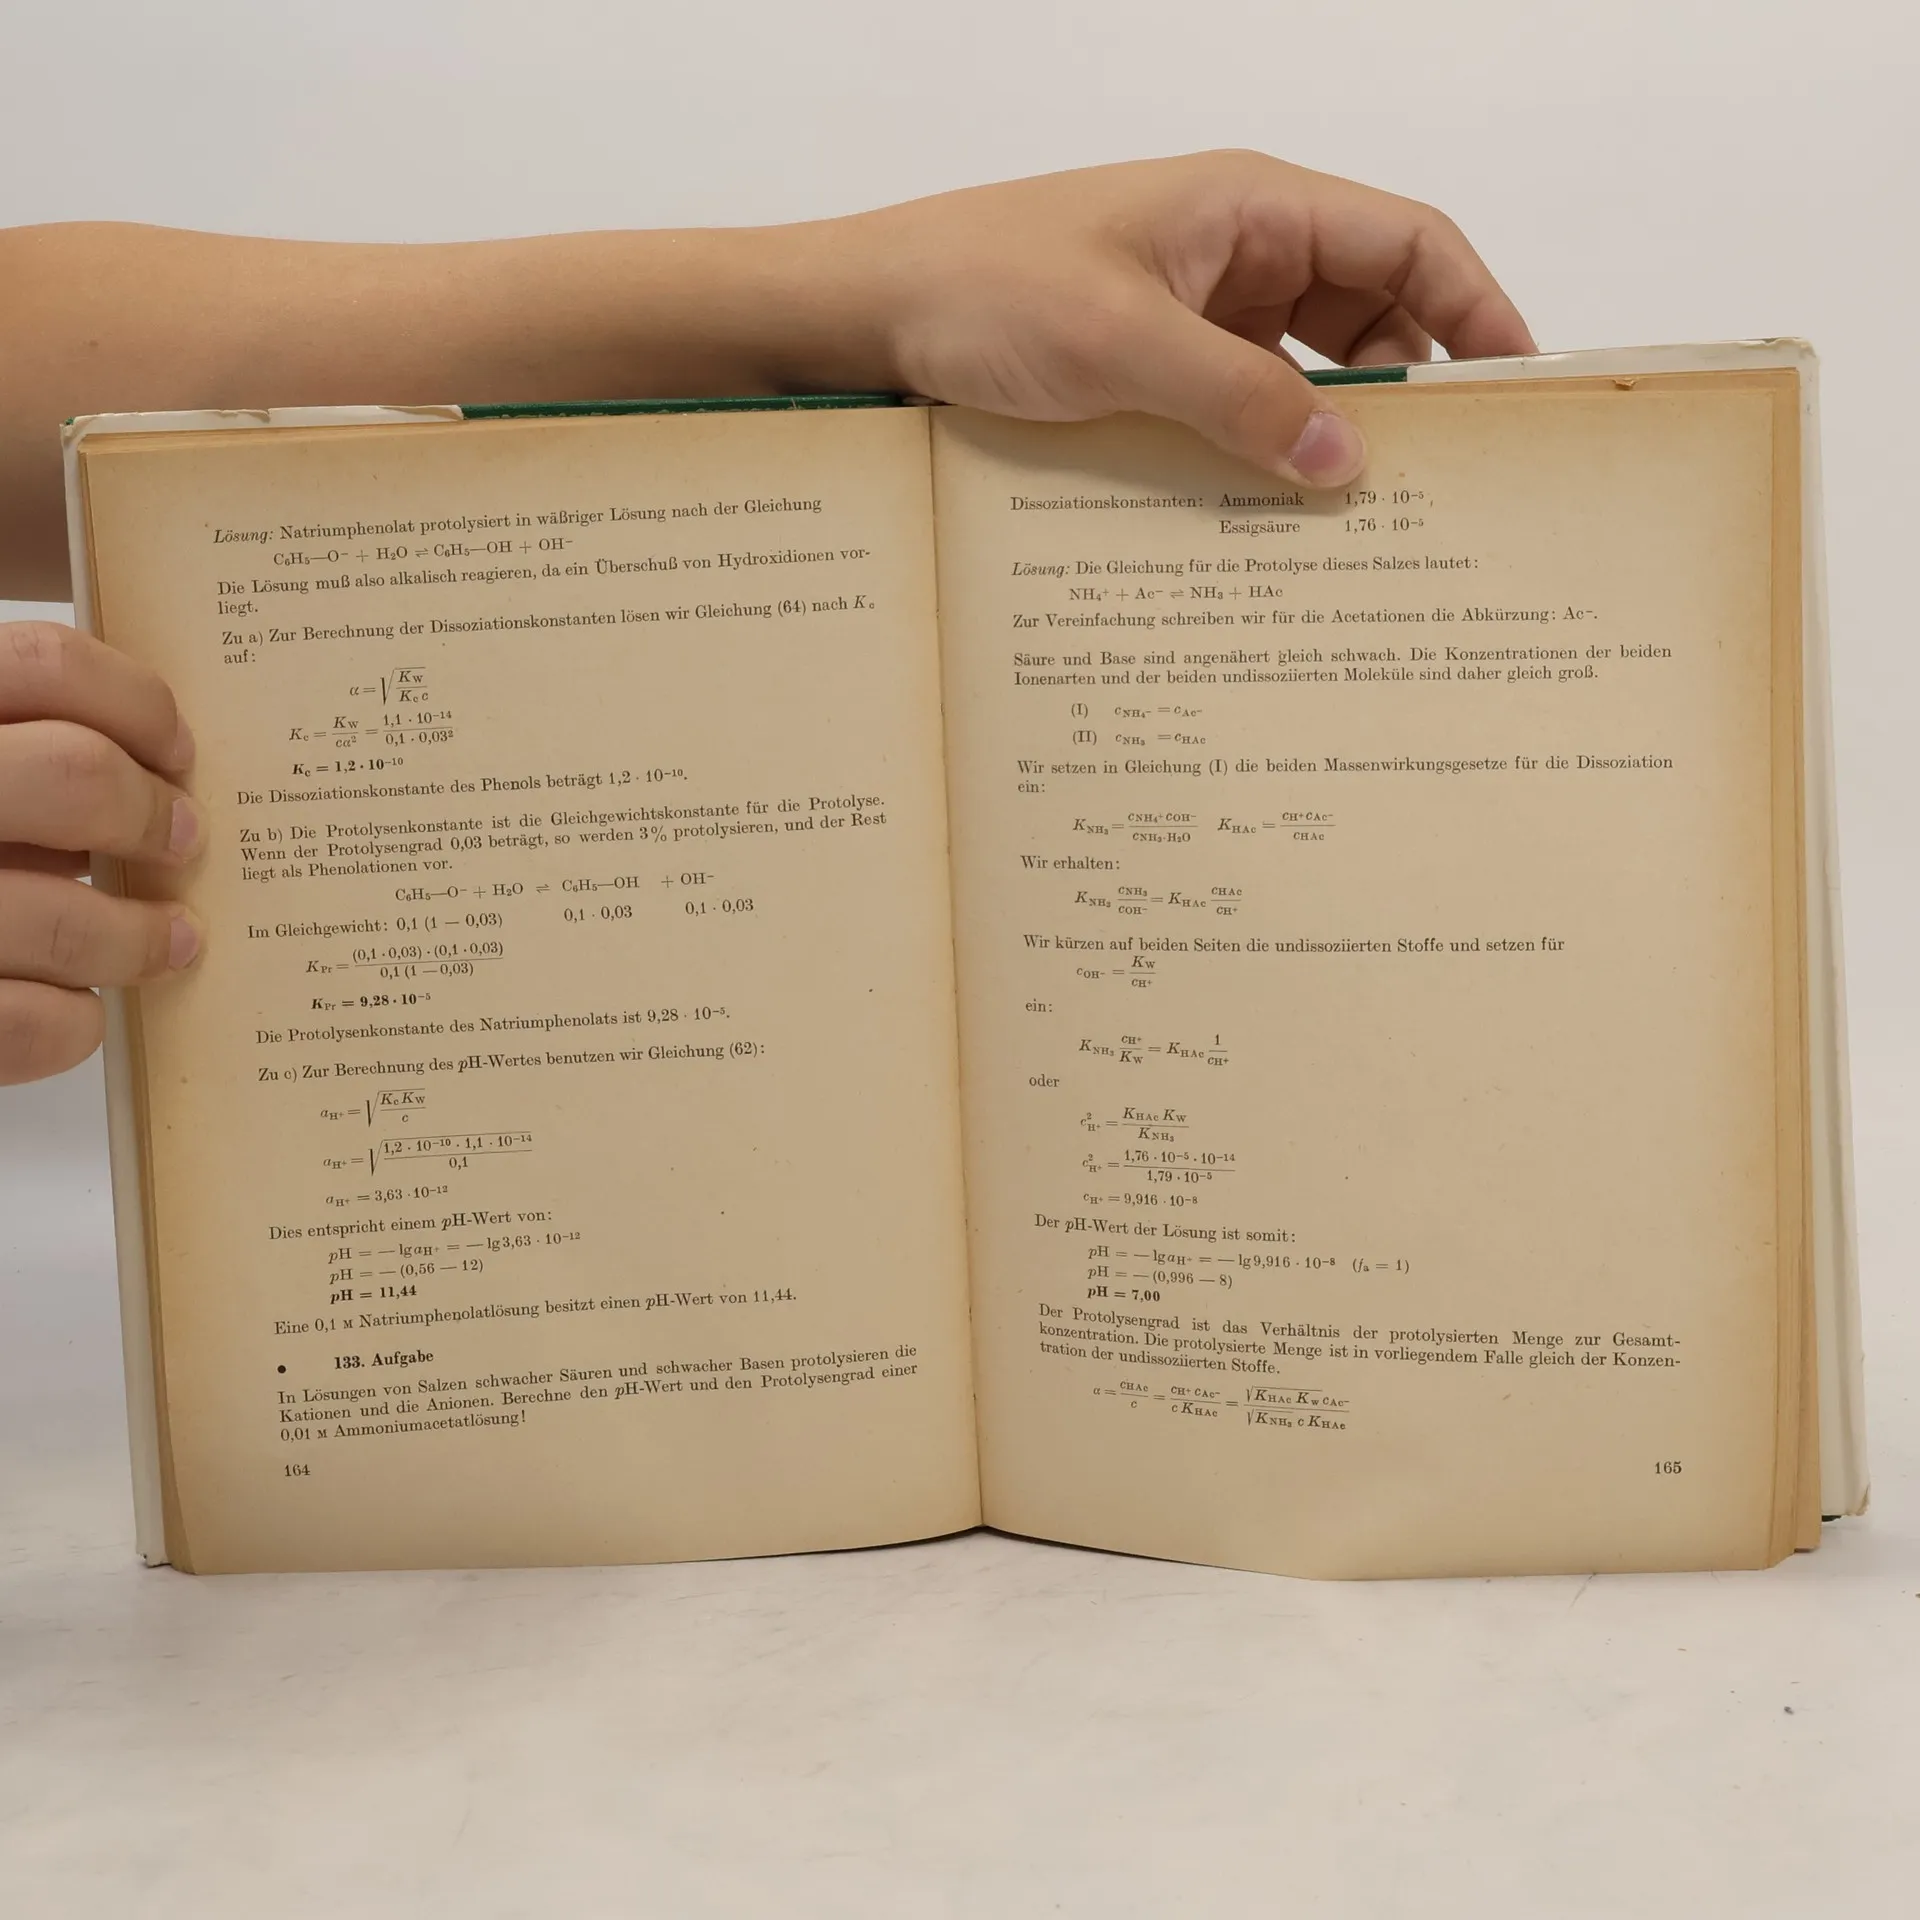 Lösung: Natriumphenolat protolysiert in wäßriger Lösung nach der Gleichung
C₆H₅—O⁻ + H₂O ⇌ C₆H₅—OH + OH⁻
Die Lösung muß also alkalisch reagieren, da ein Überschuß von Hydroxidionen vor-
liegt.
Zu a) Zur Berechnung der Dissoziationskonstanten lösen wir Gleichung (64) nach K_c
auf:
α = √(K_W / (K_c c))
K_c = K_W / (cα²) = (1,1 · 10⁻¹⁴) / (0,1 · 0,03²)
K_c = 1,2 · 10⁻¹⁰
Die Dissoziationskonstante des Phenols beträgt 1,2 · 10⁻¹⁰.
Zu b) Die Protolysenkonstante ist die Gleichgewichtskonstante für die Protolyse.
Wenn der Protolysengrad 0,03 beträgt, so werden 3% protolysieren, und der Rest
liegt als Phenolationen vor.
C₆H₅—O⁻ + H₂O ⇌ C₆H₅—OH + OH⁻
Im Gleichgewicht: 0,1 (1 — 0,03) 0,1 · 0,03 0,1 · 0,03
K_Pr = ((0,1 · 0,03) · (0,1 · 0,03)) / (0,1 (1 — 0,03))
K_Pr = 9,28 · 10⁻⁵
Die Protolysenkonstante des Natriumphenolats ist 9,28 · 10⁻⁵.
Zu c) Zur Berechnung des pH-Wertes benutzen wir Gleichung (62):
a_H⁺ = √(K_c K_W / c)
a_H⁺ = √((1,2 · 10⁻¹⁰ · 1,1 · 10⁻¹⁴) / 0,1)
a_H⁺ = 3,63 · 10⁻¹²
Dies entspricht einem pH-Wert von:
pH = — lg a_H⁺ = — lg 3,63 · 10⁻¹²
pH = — (0,56 — 12)
pH = 11,44
Eine 0,1 M Natriumphenolatlösung besitzt einen pH-Wert von 11,44.
● 133. Aufgabe
In Lösungen von Salzen schwacher Säuren und schwacher Basen protolysieren die
Kationen und die Anionen. Berechne den pH-Wert und den Protolysengrad einer
0,01 M Ammoniumacetatlösung!
164
Dissoziationskonstanten: Ammoniak 1,79 · 10⁻⁵
Essigsäure 1,76 · 10⁻⁵
Lösung: Die Gleichung für die Protolyse dieses Salzes lautet:
NH₄⁺ + Ac⁻ ⇌ NH₃ + HAc
Zur Vereinfachung schreiben wir für die Acetationen die Abkürzung: Ac⁻.
Säure und Base sind angenähert gleich schwach. Die Konzentrationen der beiden
Ionenarten und der beiden undissoziierten Moleküle sind daher gleich groß.
(I) c_NH₄⁻ = c_Ac⁻
(II) c_NH₃ = c_HAc
Wir setzen in Gleichung (I) die beiden Massenwirkungsgesetze für die Dissoziation
ein:
K_NH₃ = (c_NH₄⁺ c_OH⁻) / (c_NH₃·H₂O) K_HAc = (c_H⁺ c_Ac⁻) / c_HAc
Wir erhalten:
K_NH₃ c_NH₃ / c_OH⁻ = K_HAc c_HAc / c_H⁺
Wir kürzen auf beiden Seiten die undissoziierten Stoffe und setzen für
c_OH⁻ = K_W / c_H⁺
ein:
K_NH₃ c_H⁺ / K_W = K_HAc 1 / c_H⁺
oder
c²_H⁺ = (K_HAc K_W) / K_NH₃
c²_H⁺ = (1,76 · 10⁻⁵ · 10⁻¹⁴) / (1,79 · 10⁻⁵)
c_H⁺ = 9,916 · 10⁻⁸
Der pH-Wert der Lösung ist somit:
pH = — lg a_H⁺ = — lg 9,916 · 10⁻⁸ (f_a = 1)
pH = — (0,996 — 8)
pH = 7,00
Der Protolysengrad ist das Verhältnis der protolysierten Menge zur Gesamt-
konzentration. Die protolysierte Menge ist in vorliegendem Falle gleich der Konzen-
tration der undissoziierten Stoffe.
α = c_HAc / c = (c_H⁺ c_Ac⁻) / (c K_HAc) = (√(K_HAc K_W) c_Ac⁻) / (√(K_NH₃) c K_HAc)
165